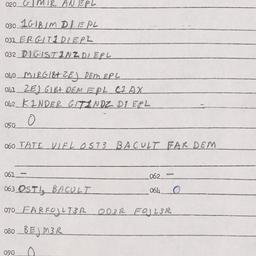 020 GIMIR AN EPL
030 1GIBIM DI EPL
031 ERGIT1DIEPL
032 DIGIST1NZ DI EPL
040 MIRGIBt ZEJ DEM EPL
041 ZEJ GIBt DEM EPL
042 KINDER GITINDZ DI EPL
050 0
060 TATE VIFL OST3 BACULT FAR DEM
061 – 062 –
063 BACULT 064 0
070 FARFOJLT3R OD3R FOJL3R
080 BEJM3R
090 0